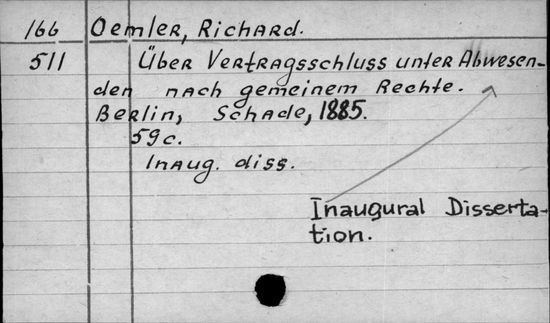 166 Oemler, Richard.
511 Über Vertragsschluss unter Abwesen-
den nach gemeinem Rechte.
Berlin, Schade, 1885.
59c.
Inaug. diss.
Inaugural Disserta-
tion.